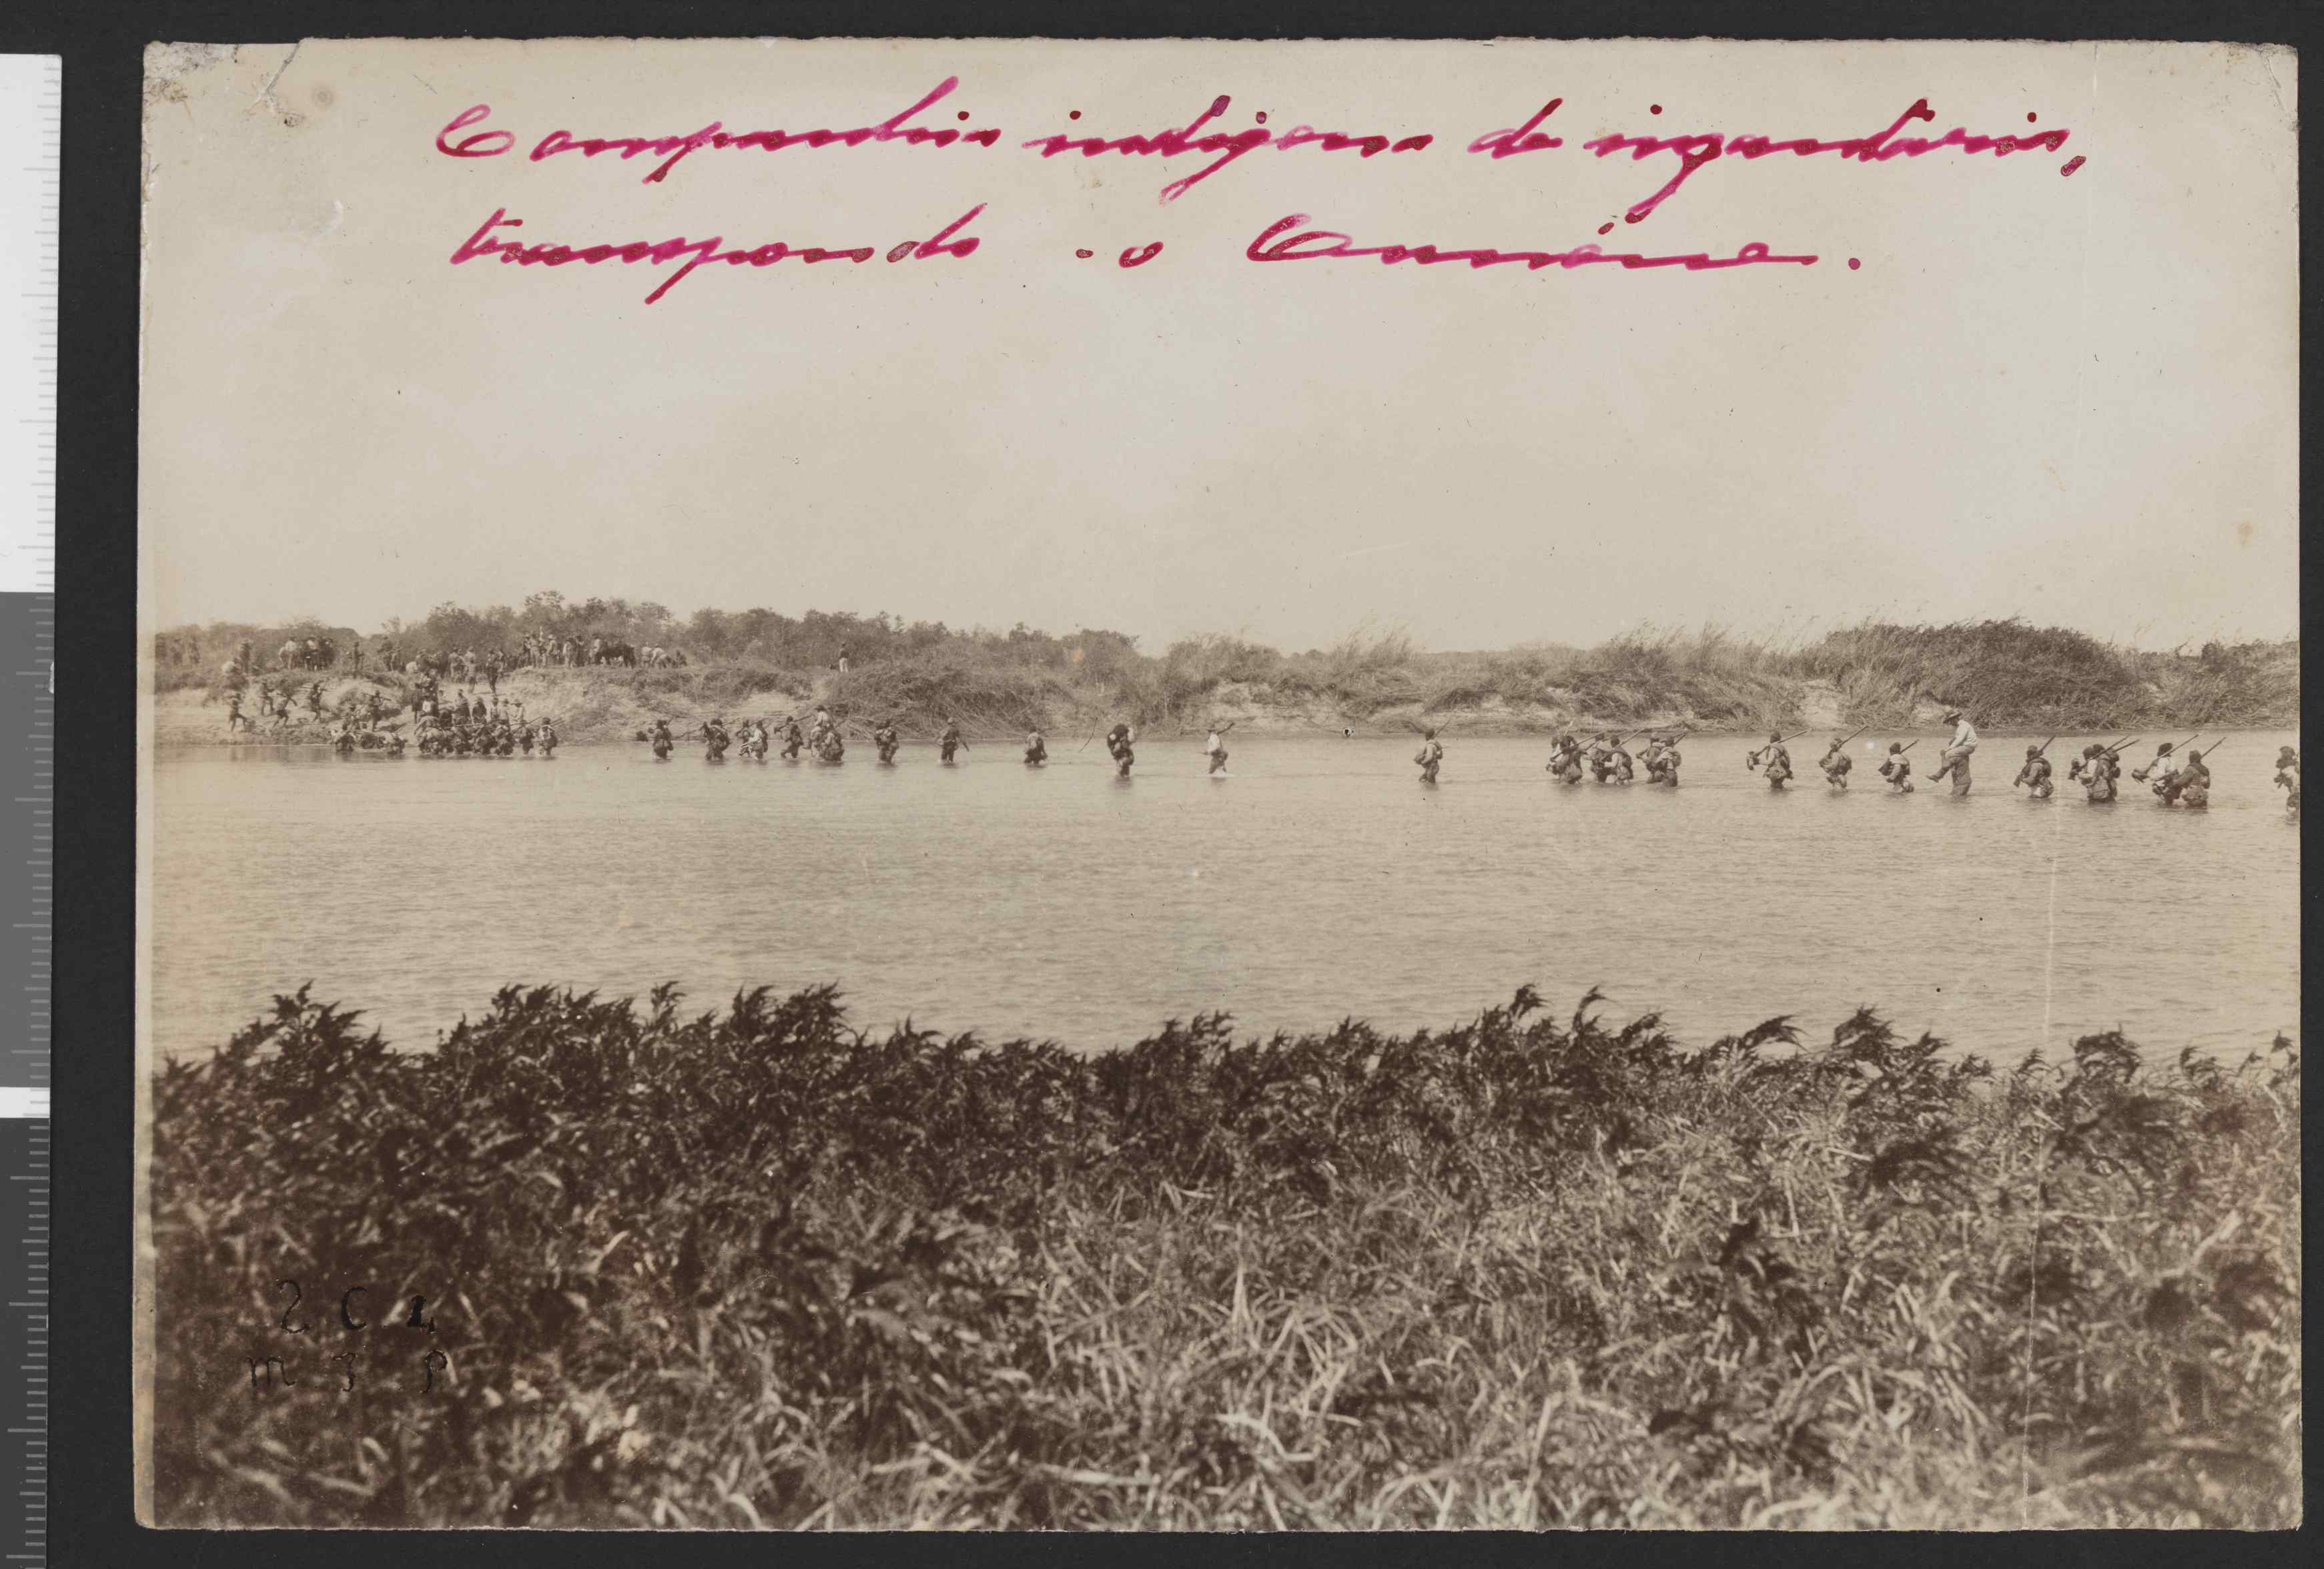 Companhia indigena de infantaria,
transpondo o Cunene.
2 C 1
m 3 P